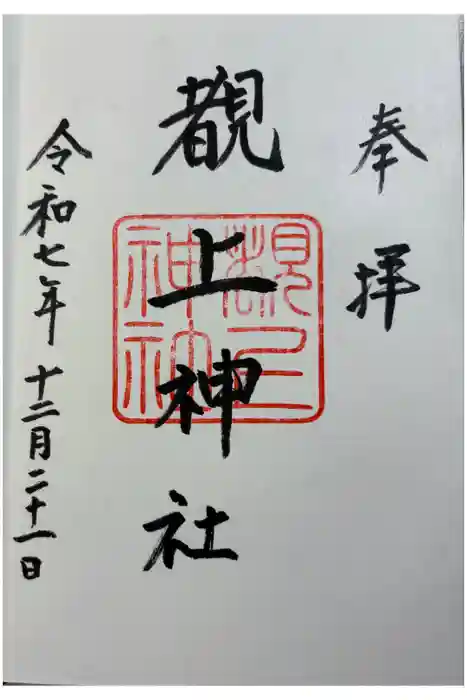 奉拝
覩上神社
覩上
神社
令和七年十二月二十一日